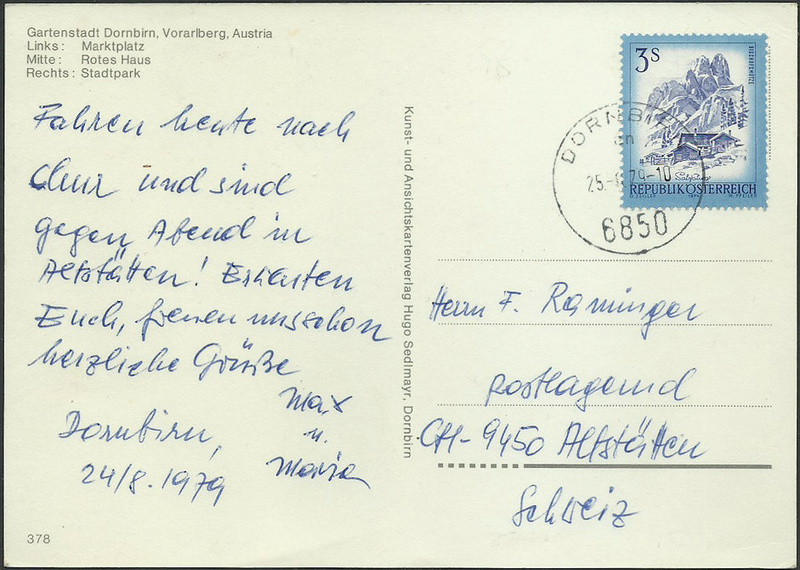 Gartenstadt Dornbirn, Vorarlberg, Austria
Links: Marktplatz
Mitte: Rotes Haus
Rechts: Stadtpark
Fahren heute nach
Chur und sind
gegen Abend in
Altstätten! Erwarten
Euch, freuen uns schon
herzliche Grüße
Max
u.
Maria
Dornbirn,
24/8.1979
378
Kunst- und Ansichtskartenverlag Hugo Sedlmayr, Dornbirn
3S
REPUBLIK ÖSTERREICH
DORNBIRN
25.-8.79-10
6850
Herrn F. Raminger
postlagernd
CH-9450 Altstätten
Schweiz